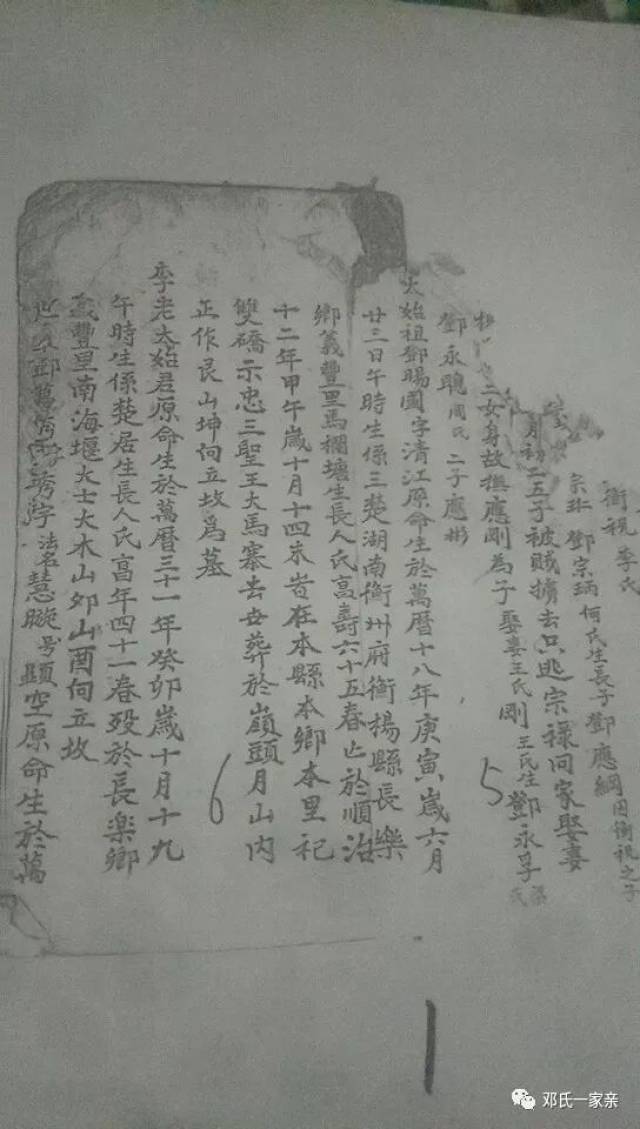 衡視 李氏
宗琳 鄧宗炳 何氏生長子 鄧應綱 因衡視之子
月初二五子被賊擄去只逃宗祿回家娶妻
二女身故撫應剛為子娶妻王氏 剛 王氏生 鄧永孚
鄧永聰 周氏 二子應彬
太始祖鄧賜國字清江原命生於萬曆十八年庚寅歲六月
廿三日午時生係三楚湖南衡州府衡楊縣長樂
鄉義豐里馬欄塘生長人氏高壽六十五春亡於順治
十二年甲午歲十月十四末皆在本縣本鄉本里祀
雙礄示忠三聖王大馬寨去世葬於嶺頭月山內
正作艮山坤向立坟為墓
李老太始君原命生於萬曆三十一年癸卯歲十月十九
午時生係楚居生長人氏高年四十一春歿於長樂鄉
義豐里南海堰大士大木山夘山酉向立坟
鄧 秀 字 法名慧璇 号顯空原命生於萬
5
6
1
邓氏一家亲